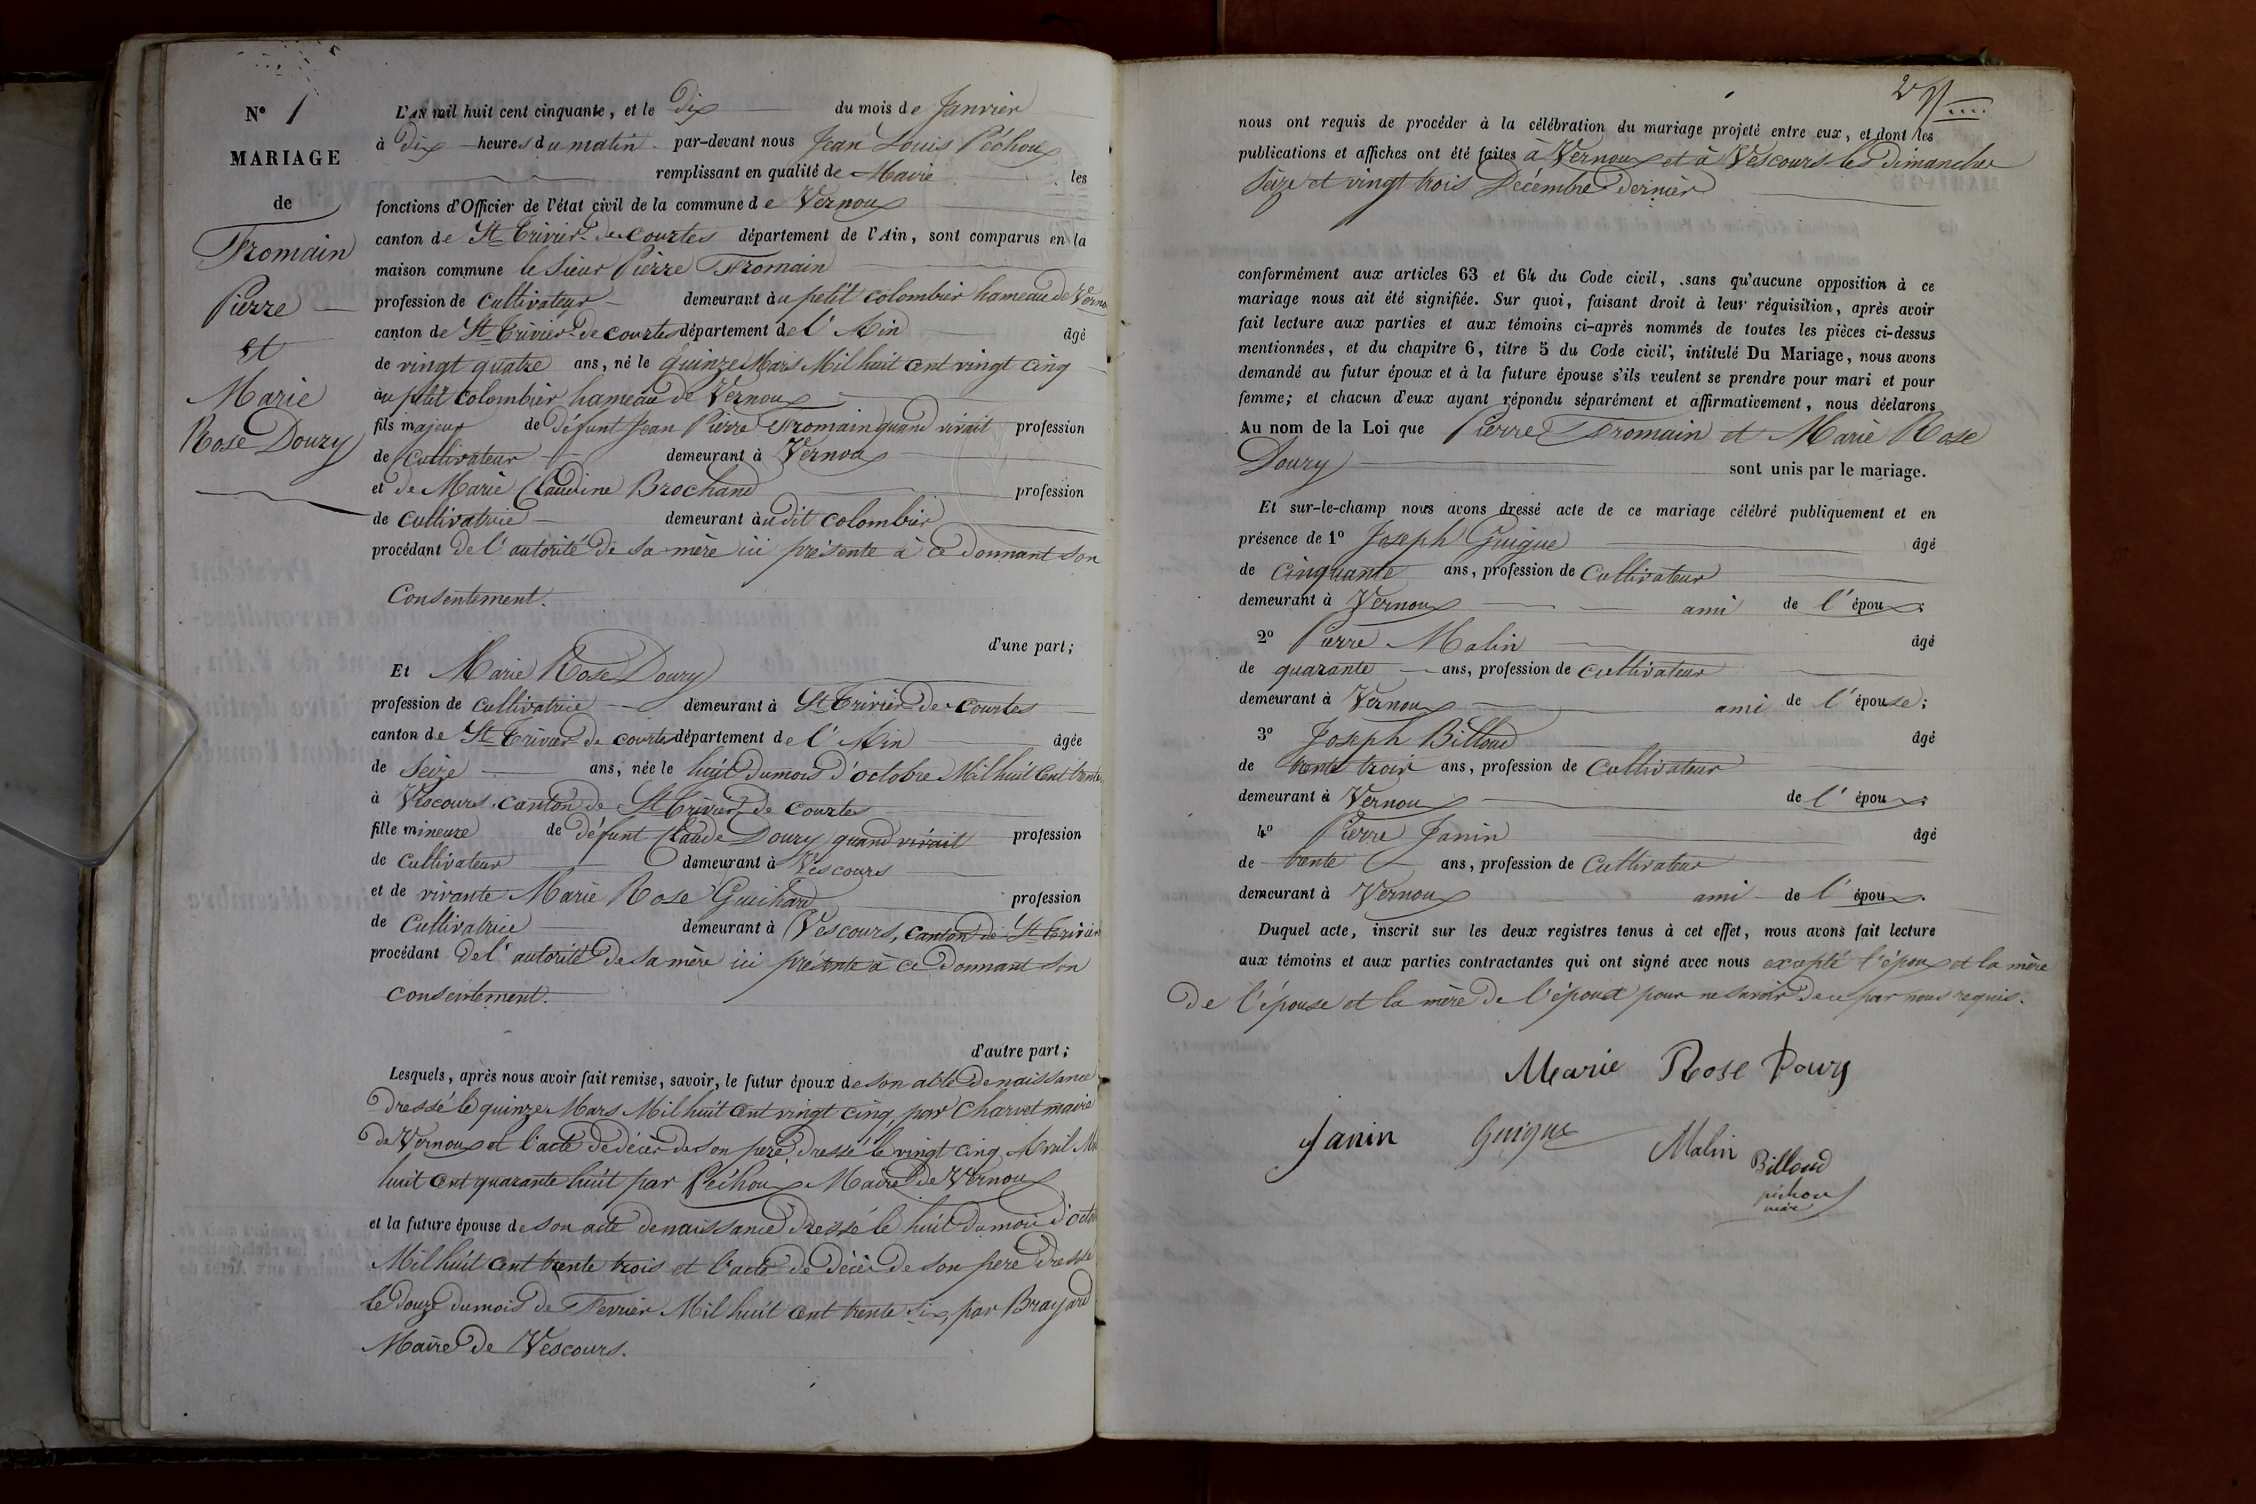 N° 1
MARIAGE
de
Fromain
Pierre
et
Marie
Rose Doury
L'AN mil huit cent cinquante, et le dix du mois de Janvier
à dix heures du matin par-devant nous Jean Louis Péchoux
remplissant en qualité de Maire les
fonctions d'Officier de l'état civil de la commune de Vernoux
canton de St Trivier de courtes département de l'Ain, sont comparus en la
maison commune le sieur Pierre Fromain
profession de cultivateur demeurant au petit colombier hameau de Verno
canton de St Trivier de courtes département de l'Ain âgé
de vingt quatre ans, né le quinze Mars Mil huit cent vingt cinq
au petit Colombier hameau de Vernoux
fils majeur de défunt Jean Pierre Fromain quand vivait profession
de Cultivateur demeurant à Vernoux
et de Marie Claudine Brochand profession
de cultivatrice demeurant audit colombier
procédant de l'autorité de sa mère ici présente à ce donnant son
Consentement.
d'une part;
Et Marie Rose Doury
profession de cultivatrice demeurant à St Trivier de courtes
canton de St Trivier de courtes département de l'Ain âgée
de Seize ans, née le huit du mois d'octobre Mil huit cent trente
à Vescours canton de St Trivier de courtes
fille mineure de défunt Claude Doury quand vivait profession
de cultivateur demeurant à Vescours
et de vivante Marie Rose Guichard profession
de Cultivatrice demeurant à Vescours, canton de St Trivier
procédant de l'autorité de sa mère ici présente à ce donnant son
consentement.
d'autre part;
Lesquels, après nous avoir fait remise, savoir, le futur époux de son acte de naissance
dressé le quinze Mars Mil huit cent vingt cinq, par Charvet maire
de Vernoux et l'acte de décès de son père dressé le vingt cinq Avril Mil
huit cent quarante huit par Péchoux Maire de Vernoux
et la future épouse de son acte de naissance dressé le huit du mois d'octob
Mil huit cent trente trois et l'acte de décès de son père dressé
le douze du mois de Fevrier Mil huit cent trente six, par Brayard
Maire de Vescours.
2
nous ont requis de procéder à la célébration du mariage projeté entre eux, et dont les
publications et affiches ont été faites à Vernoux et à Vescours les dimanches
Seize et vingt trois Décembre dernier
conformément aux articles 63 et 64 du Code civil, sans qu'aucune opposition à ce
mariage nous ait été signifiée. Sur quoi, faisant droit à leur réquisition, après avoir
fait lecture aux parties et aux témoins ci-après nommés de toutes les pièces ci-dessus
mentionnées, et du chapitre 6, titre 5 du Code civil, intitulé Du Mariage, nous avons
demandé au futur époux et à la future épouse s'ils veulent se prendre pour mari et pour
femme; et chacun d'eux ayant répondu séparément et affirmativement, nous déclarons
Au nom de la Loi que Pierre Fromain et Marie Rose
Doury sont unis par le mariage.
Et sur-le-champ nous avons dressé acte de ce mariage célébré publiquement et en
présence de 1° Joseph Guigue âgé
de cinquante ans, profession de Cultivateur
demeurant à Vernoux ami de l'époux;
2° Pierre Malin âgé
de quarante ans, profession de cultivateur
demeurant à Vernoux ami de l'épouse;
3° Joseph Billoud âgé
de trente trois ans, profession de Cultivateur
demeurant à Vernoux de l'époux;
4° Pierre Janin âgé
de trente ans, profession de Cultivateur
demeurant à Vernoux ami de l'époux.
Duquel acte, inscrit sur les deux registres tenus à cet effet, nous avons fait lecture
aux témoins et aux parties contractantes qui ont signé avec nous excepté l'époux et la mère
de l'épouse et la mère de l'époux pour ne savoir de ce par nous requis.
Marie Rose Doury
Janin Guigue Malin Billoud
péchoux
maire